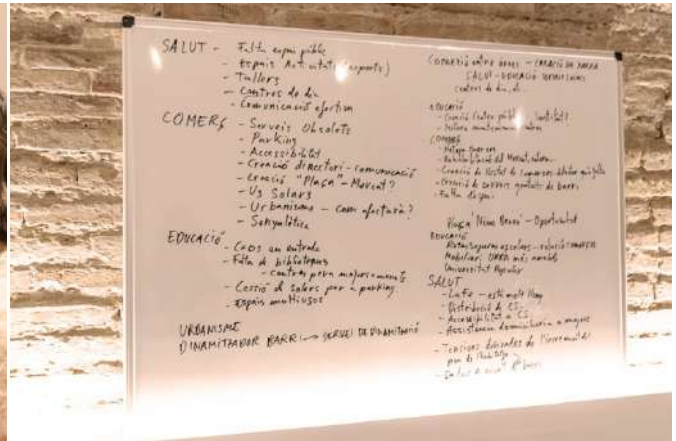 SALUT - Falta espai públic
- Espais Activitats (esports)
- Tallers
- Centres de dia
- Comunicació efectiva
COMERÇ - Serveis Obsolets
- Parking
- Accessibilitat
- Creació directori - comunicació
- Creació "Plaça" - Mercat?
- Ús Solars
- Urbanisme - com afectarà?
- Senyalética
EDUCACIÓ
- Caos en entrada
- Falta de biblioteques
- centres para majors
- Cessió de solars per a parking
- Espais multiusos
URBANISME
DINAMITZADOR BARRI → SERVEI DE DINAMITZACIÓ
Conexió entre àrees - CREACIÓ DE XARXA
SALUT - EDUCACIÓ
centres de dia,
EDUCACIÓ
- Creació Centre públic
COMERÇ
- Rehabilitació del Mercat
- Creació de
- Creació de serveis de barri
- Falta d'espai
Plaça "Nino Bravo" - Oportunitat
EDUCACIÓ
Rutes segures escolars - relació comerç
Mobiliari URBÀ més amable
Universitat Popular
SALUT
- La Fe - està molt lluny
- Distribució de CS
- Accessibilitat a CS
- Assistencia domiciliaria a majors
- Tensions derivades de l'increment del
preu de l'habitatge